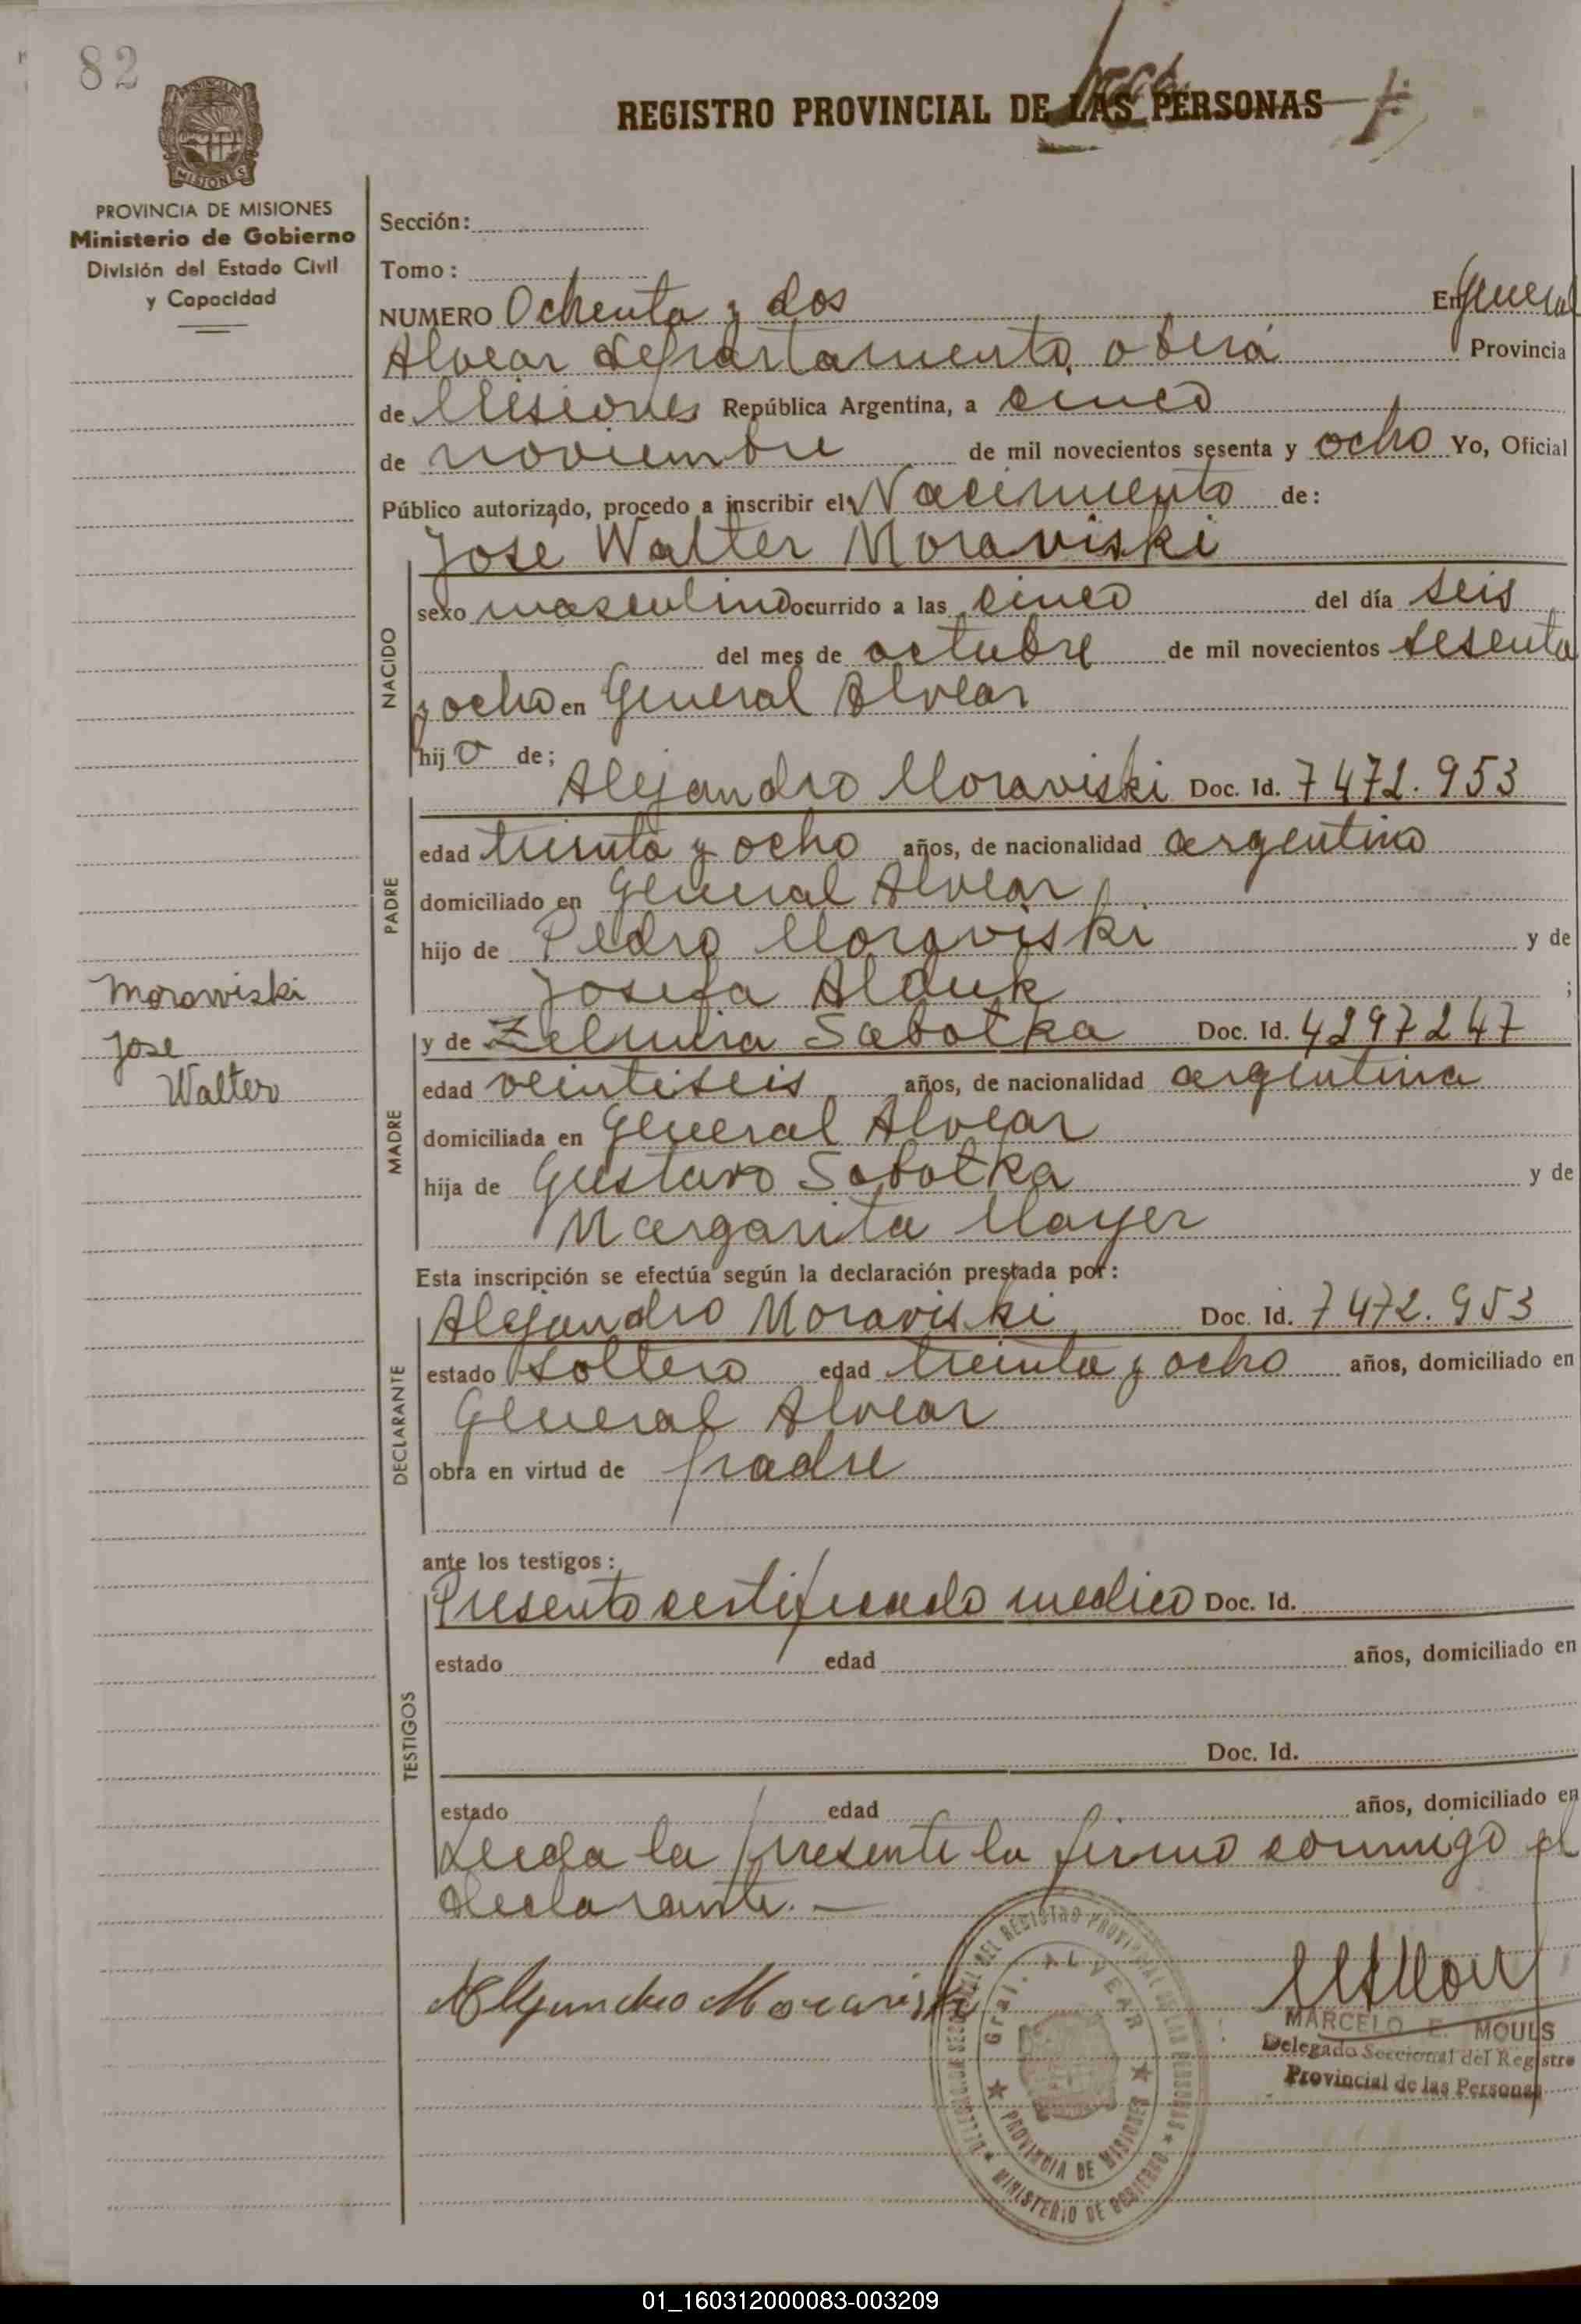 82
REGISTRO PROVINCIAL DE LAS PERSONAS
MISIONES
PROVINCIA DE MISIONES
Ministerio de Gobierno
División del Estado Civil
y Capacidad
Sección:
Tomo:
NUMERO Ochenta y dos En General
Alvear departamento, oberá Provincia
de Misiones República Argentina, a cinco
de noviembre de mil novecientos sesenta y ocho Yo, Oficial
Público autorizado, procedo a inscribir el Nacimiento de:
José Walter Moraviski
NACIDO
sexo masculino ocurrido a las cinco del día seis
del mes de octubre de mil novecientos sesenta
y ocho en General Alvear
hijo de;
PADRE
Alejandro Moraviski Doc. Id. 7472.953
edad treinta y ocho años, de nacionalidad argentino
domiciliado en General Alvear
hijo de Pedro Moraviski y de
Josefa Alduk ;
Morawiski
Jose
Walter
MADRE
y de Zelmira Sabotka Doc. Id. 4297247
edad veintiseis años, de nacionalidad argentina
domiciliada en General Alvear
hija de Gustavo Sabotka y de
Margarita Mayer
Esta inscripción se efectúa según la declaración prestada por:
DECLARANTE
Alejandro Moraviski Doc. Id. 7472.953
estado soltero edad treinta y ocho años, domiciliado en
General Alvear
obra en virtud de padre
ante los testigos:
TESTIGOS
Presento certificado medico Doc. Id.
estado edad años, domiciliado en
Doc. Id.
estado edad años, domiciliado en
Leida la presente la firmo conmigo el
declarante.—
Alejandro Moraviski
DEL REGISTRO PROVINCIAL DE LAS PERSONAS
MINISTERIO DE GOBIERNO
Gral. ALVEAR
PROVINCIA DE MISIONES
MARCELO E. MOULS
Delegado Seccional del Registro
Provincial de las Personas
01_160312000083-003209